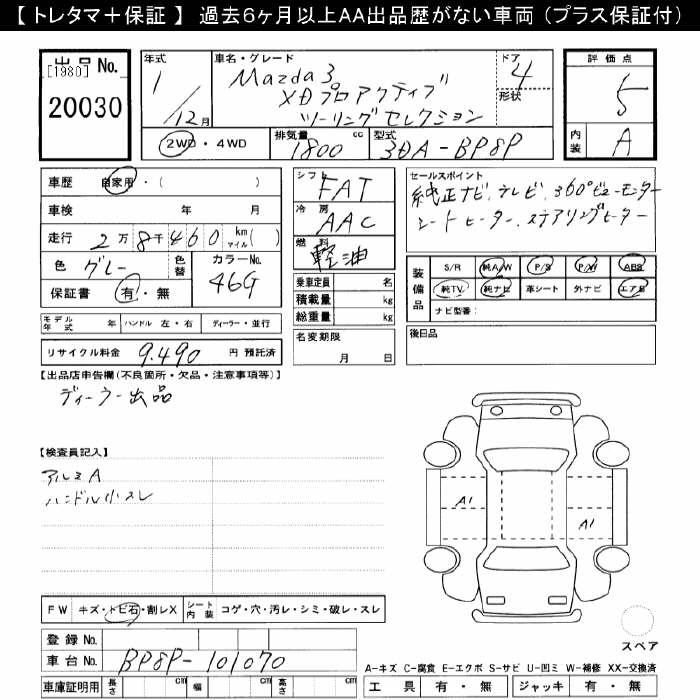 【 トレタマ＋保証 】 過去６ヶ月以上AA出品歴がない車両（プラス保証付）
出品 No.
[1980]
20030
年式
1/12月
車名・グレード
Mazda3
XDプロアクティブ
ツーリングセレクション
ドア
4
形状
評価点
5
内装
A
2WD・4WD
排気量
1800 cc
型式
3DA-BP8P
車歴 自家用・( )
車検 年 月
走行 2万8千460 km マイル( )
色 グレー 色替 カラーNo. 46G
保証書 有・無
シフト FAT
冷房 AAC
燃料 軽油
乗車定員 名
積載量 kg
総重量 kg
名変期限
月 日
セールスポイント
純正ナビ、テレビ、360°ビューモニター
シートヒーター、ステアリングヒーター
装備品
S/R 純A/W P/S P/W ABS
純TV 純ナビ 革シート 外ナビ エアB
ナビ型番：
後日品
モデル年式 年 ハンドル 左・右 ディーラー・並行
リサイクル料金 9,490 円 預託済
【出品店申告欄(不良箇所・欠品・注意事項等)】
ディーラー出品
【検査員記入】
アルミA
ハンドル小スレ
A1
A1
スペア
FW キズ・トビ石・割レX シート内装 コゲ・穴・汚レ・シミ・破レ・スレ
登録 No.
車台 No. BP8P-101070
車庫証明用 長さ cm 幅 cm 高さ cm
A-キズ C-腐食 E-エクボ S-サビ U-凹ミ W-補修 XX-交換済
工具 有・無 ジャッキ 有・無